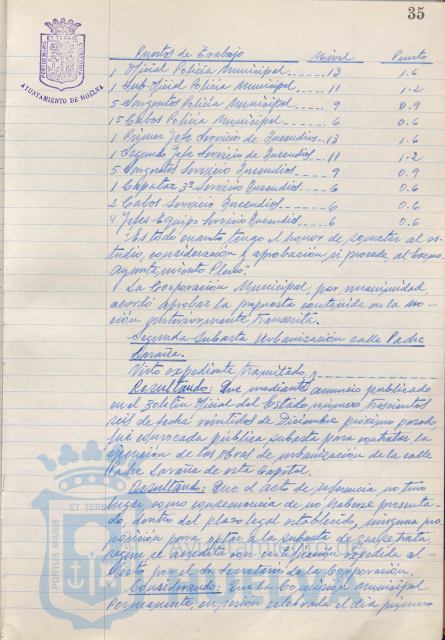 35
PORTUS MARIS ET TERRE CUSTODIA
AYUNTAMIENTO DE HUELVA
Puestos de Trabajo Nivel Punto
1 Oficial Policía Municipal 13 1.6
1 Sub-Oficial Policía Municipal 11 1.2
5 Sargentos Policía Municipal 9 0.9
15 Cabos Policía Municipal 6 0.6
1 Primer Jefe Servicio de Incendios 13 1.6
1 Segundo Jefe Servicio de Incendios 11 1.2
5 Sargentos Servicio Incendios 9 0.9
1 Capataz 3º Servicio Incendios 6 0.6
2 Cabos Servicio Incendios 6 0.6
4 Jefes Equipo Servicio Incendios 6 0.6
Es todo cuanto tengo el honor de someter al es-
tudio, consideración y aprobación, si procede, al Excmo.
Ayuntamiento Pleno."
La Corporación Municipal, por unanimidad,
acordó aprobar la propuesta contenida en la mo-
ción anteriormente transcrita.
Segunda Subasta Urbanización calle Padre
Laraña.
Visto expediente tramitado, y
Resultando: Que, mediante anuncio publicado
en el Boletín Oficial del Estado, número trescientos
seis de fecha veintidos de Diciembre próximo pasado,
fué convocada pública subasta para contratar la
ejecución de las obras de urbanización de la calle
Padre Laraña de esta Capital.
Resultando: Que el acto de referencia no tuvo
lugar como consecuencia de no haberse presenta-
do, dentro del plazo legal establecido, ninguna pro
posición para optar a la subasta de que se trata,
según se acredita con certificación expedida al
efecto por el Sr. Secretario de la Corporación.
Considerando: Que la Comisión Municipal
Permanente, en sesión celebrada el día primero